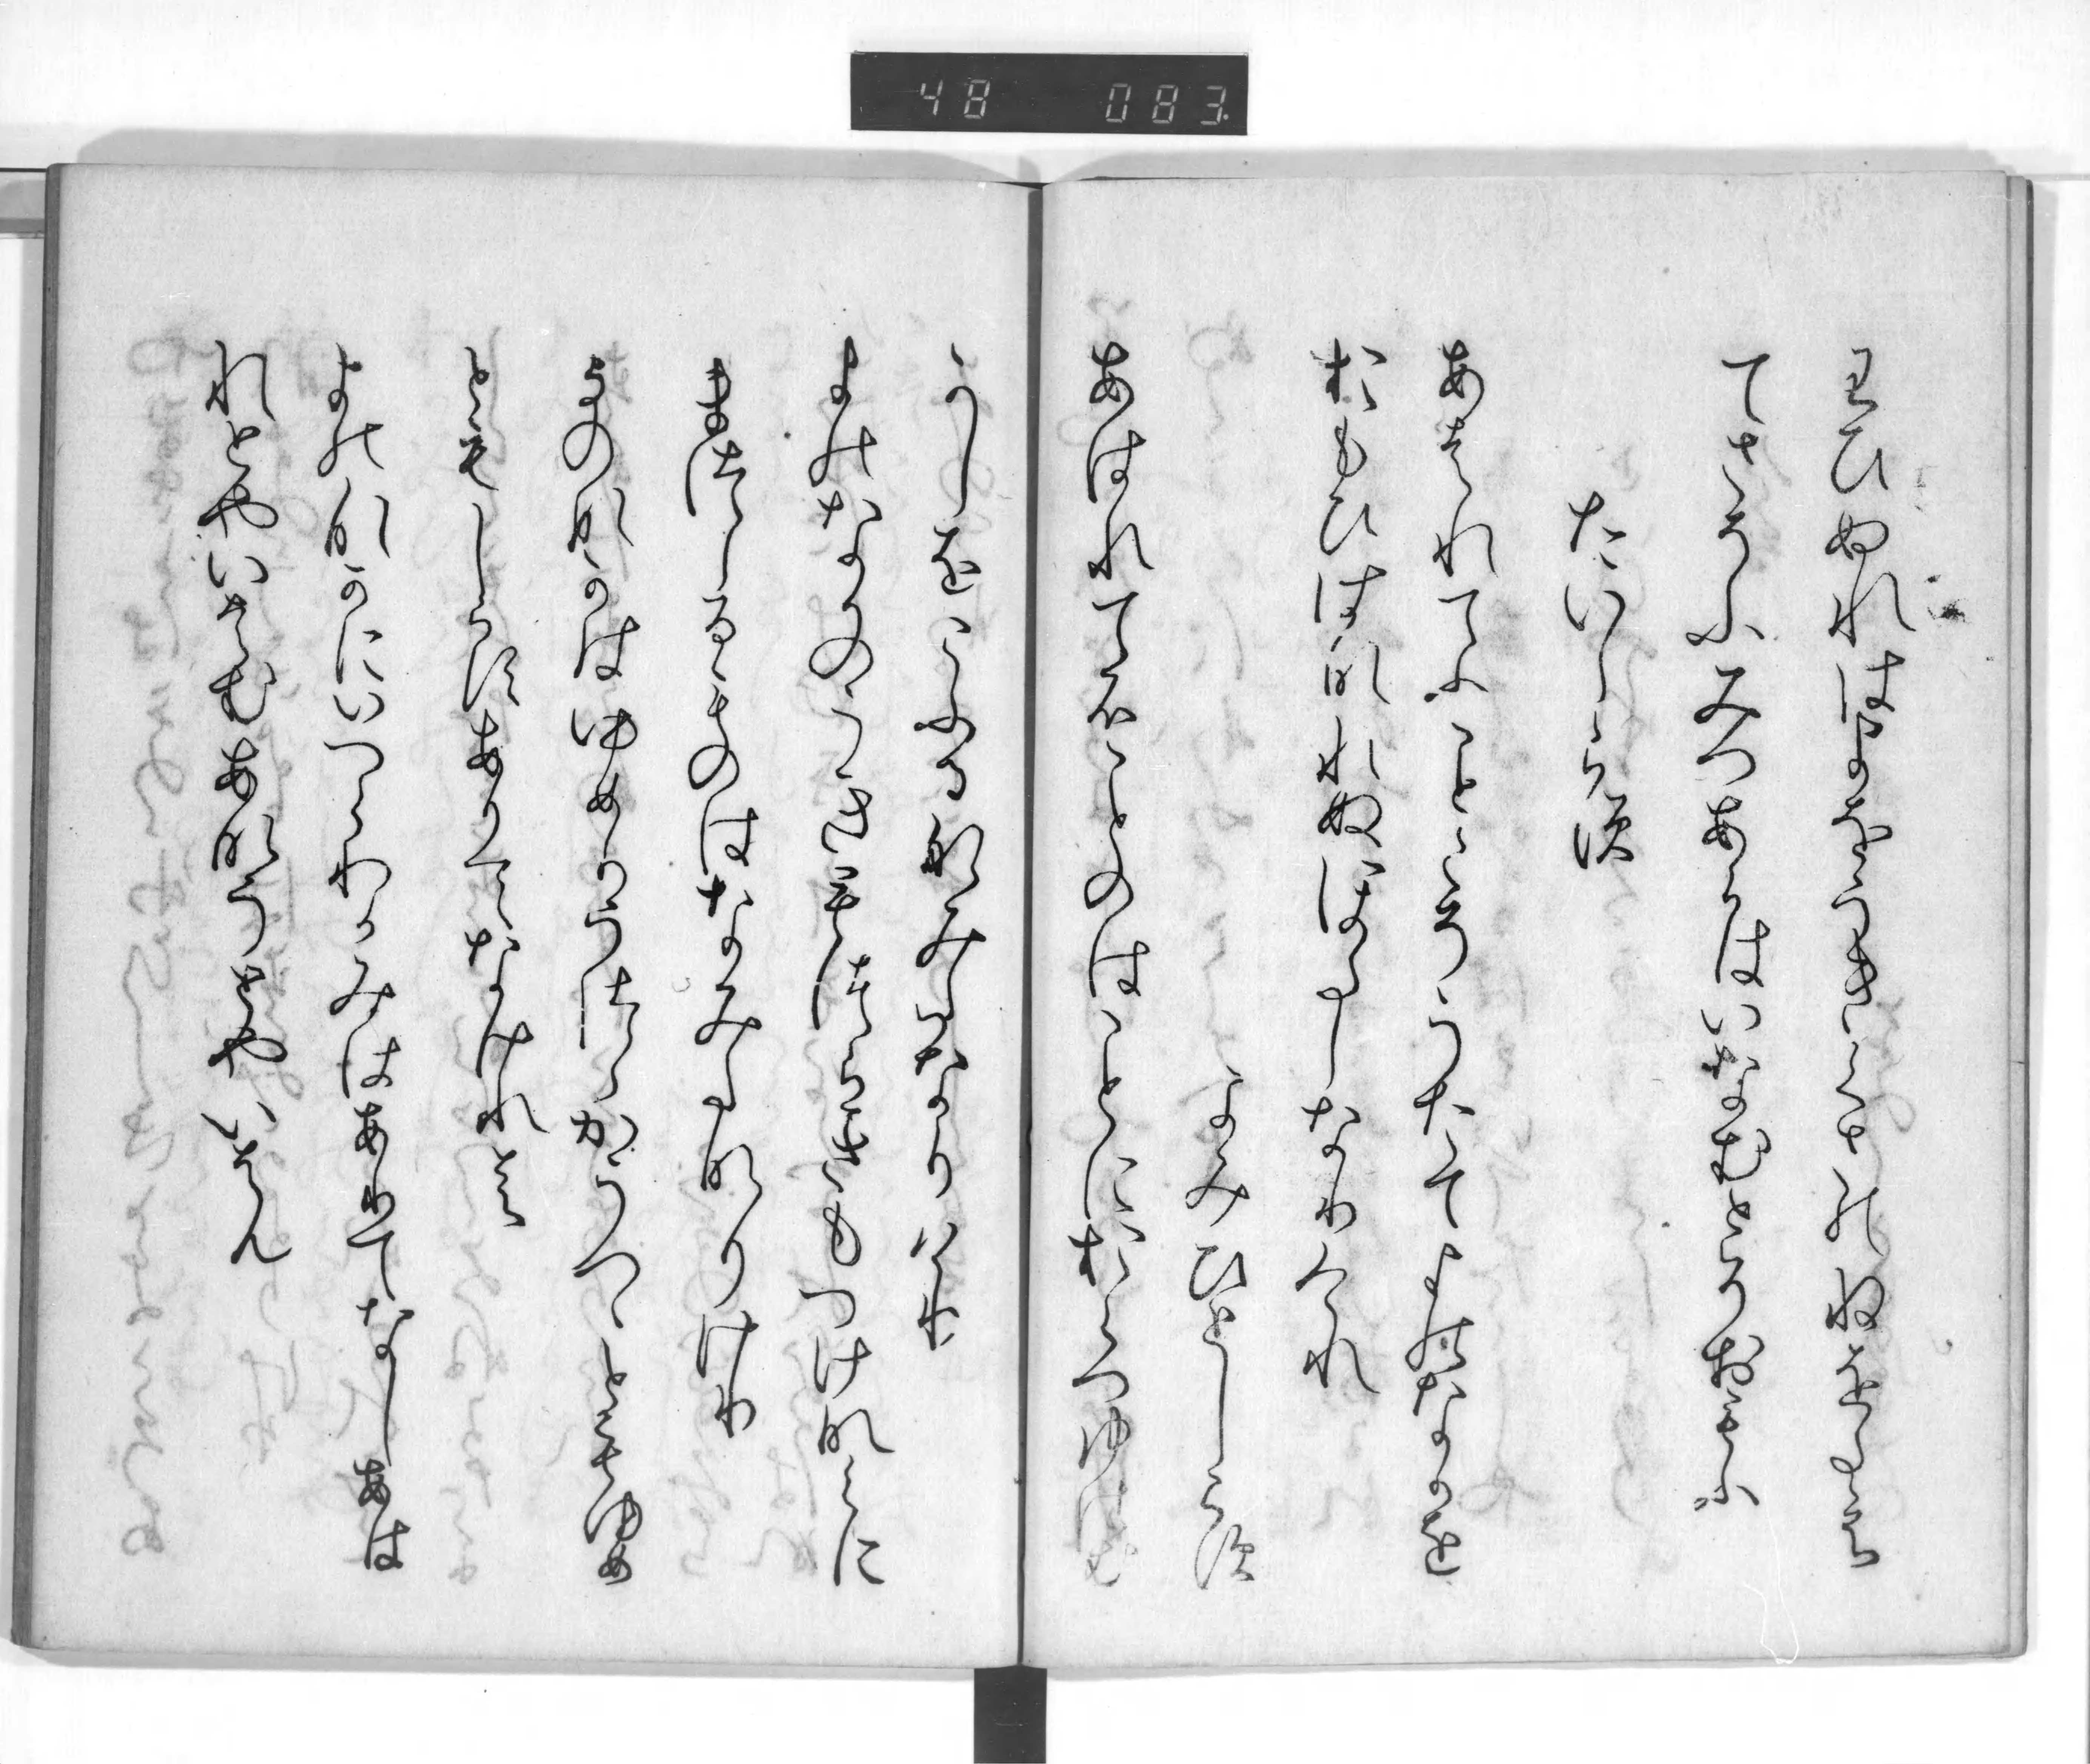 わひぬれは身をうきくさのねをたえ
てさそふみつあらはいなむとそおもふ
たいしらす
あはれてふことこそうたてよのなかを
おもひはなれぬほたしなりけれ
よみひとしらす
あはれてふことのはことにおくつゆはむ
かしをこふるなみたなりけり
よのなかのうきもつらきもつけなくに
まつしるものはなみたなりけり
よのなかはゆめかうつゝかうつゝともゆめ
ともしらすありてなけれは
よのなかにいつらわかみはありてなしあは
れとやいはむあなうとやいはん
48 083